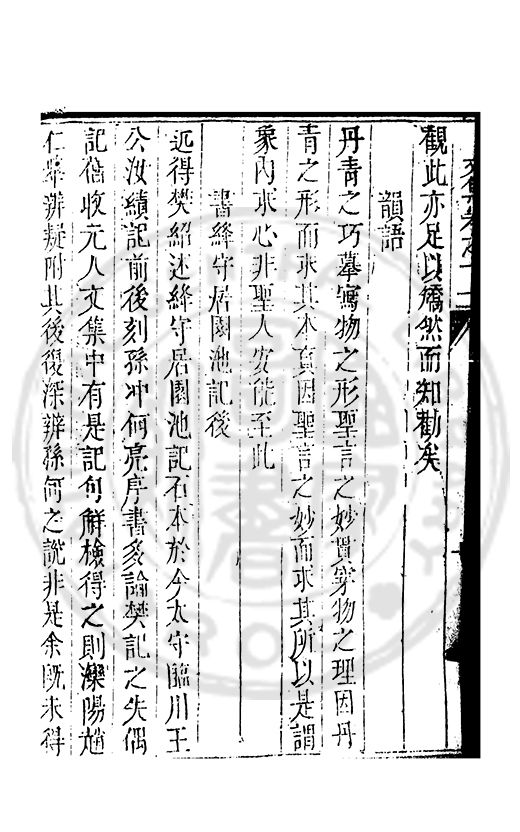 觀此亦足以矯然而知勸矣
韻語
丹青之巧摹寫物之形聖言之妙貫穿物之理因丹
青之形而求其本實因聖言之妙而求其所以是謂
象內求心非聖人安能至此
書絳守居園池記後
近得樊紹述絳守居園池記石本於今太守臨川王
公汝績記前後刻孫冲何亮序書多論樊記之失偶
記舊收元人文集中有是記句解檢得之則灤陽趙
仁舉辨疑附其後復深辨孫何之說非是余既未得